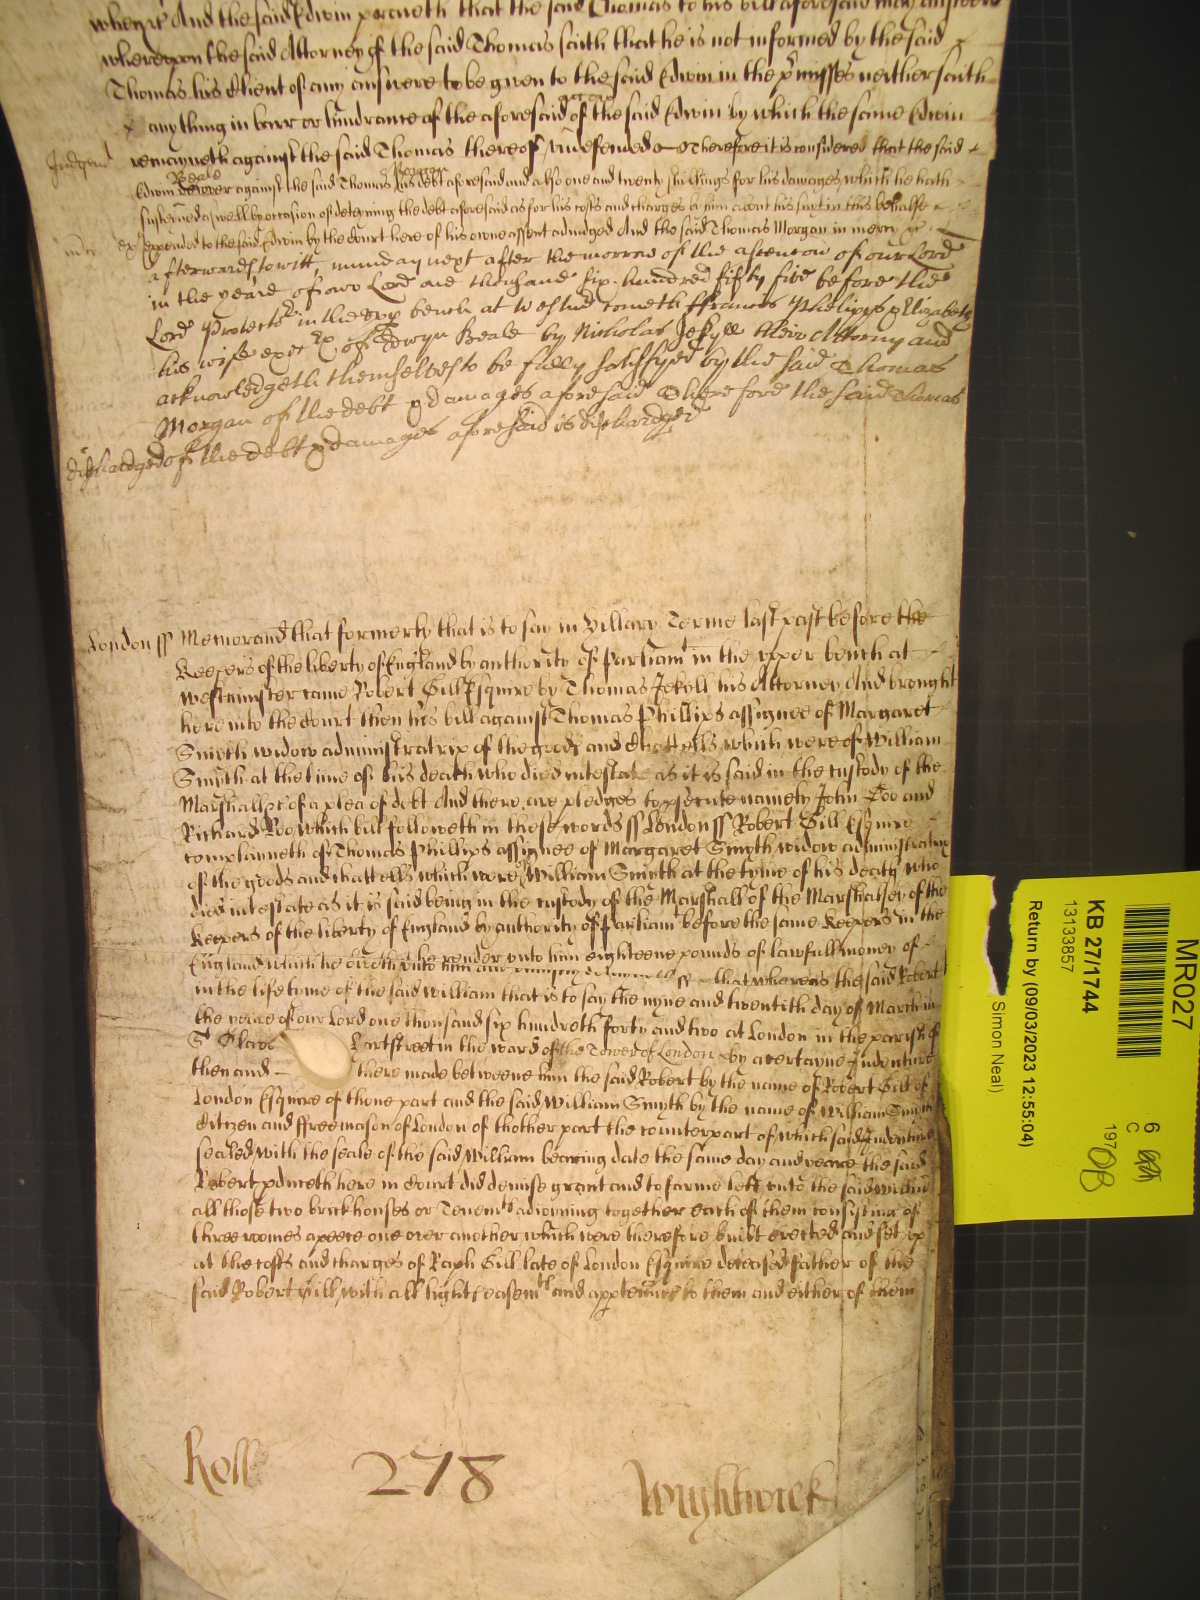 when &c And the said Edwin prayeth that the said Thomas to his bill aforesaid may answere
whereupon the said Attorney of the said Thomas saith that he is not informed by the said
Thomas his Client of any answere to be given to the said Edwin in the p'misses neither saith
any thing in barr or hindrance of the aforesaid accon of the said Edwin by which the same Edwin
Judgmt remayneth against the said Thomas thereof undefended Therefore it is considered that the said
Edwin Beale recover against the said Thomas Morgan his debt aforesaid and also one and twenty shillings for his damages which he hath
susteyned aswell by occasion of deteyning the debt aforesaid as for his costs and charges by him about his suyt in this behalfe
expended to the said Edwin by the Court here of his owne assent adiudged And the said Thomas Morgan in mercy &c
afterwards towitt munday next after the morrow of the ascencon of our Lord
in the yeare of our Lord one thousand six hundred fifty five before the
Lord Protector in the upp bench at Westmr cometh ffrances Phelipps & Elizabeth
his wife exec'x of Edwyn Beale by Nicholas Jekyll their Attorny and
acknowledgeth themselves to be fully satisfyed by the said Thomas
Morgan of the debt & damages aforesaid Therefore the said Thomas
dischardged of the debt & damages aforesaid is dischardged
London ss Memorand that formerly that is to say in Hillary Terme last past before the
Keepers of the liberty of England by authority of Parliamt in the upper bench at
Westminster came Robert Gill Esquire by Thomas Jekyll his Attorney And brought
here into the Court then his bill against Thomas Phillips assignee of Margaret
Smyth widow administratrix of the goods and Chattells which were of William
Smyth at the time of his death who died intestate as it is said in the custody of the
Marshall &c of a plea of debt And there are pledges to p'secute namely John Doo and
Richard Roo which bill followeth in these words ss London ss Robert Gill Esquire
complayneth of Thomas Phillips assignee of Margaret Smyth widow administratrix
of the goods and chattells which were of William Smyth at the tyme of his death who
died intestate as it is said being in the custody of the Marshall of the Marshalsey of the
Keepers of the liberty of England by authority of Parliamt before the same Keepers in the
England which he oweth unto him and unjustly deteyneth ss that whereas the said Robert
he render unto him eighteene pounds of lawfull money of
in the life tyme of the said William that is to say the nyne and twentith day of March in
the yeare of our Lord one thousand six hundreth forty and two at London in the parish of
St Olave Hartstreet in the ward of the Tower of London by a certayne Indenture
then and there made betweene him the said Robert by the name of Robert Gill of
London Esquire of thone part and the said William Smyth by the name of William Smyth
Citizen and ffreemason of London of thother part the counterpart of which said Indenture
sealed with the seale of the said William bearing date the same day and yeare the said
Robert p'duceth here in Court did demise grant and to farme lett unto the said William
all those two brickhouses or Tenemts adioyning together each of them consisting of
three roomes apeece one over another which were therefore built erected and set up
at the costs and charges of Raph Gill late of London Esquire deceased father of the
said Robert Gill with all lights easemts and appten'nces to them and either of them
Roll 278 Wightwick
MR027
KB 27/1744
13133857
Return by (09/03/2023 12:55:04)
Simon Neal)
6
C
197